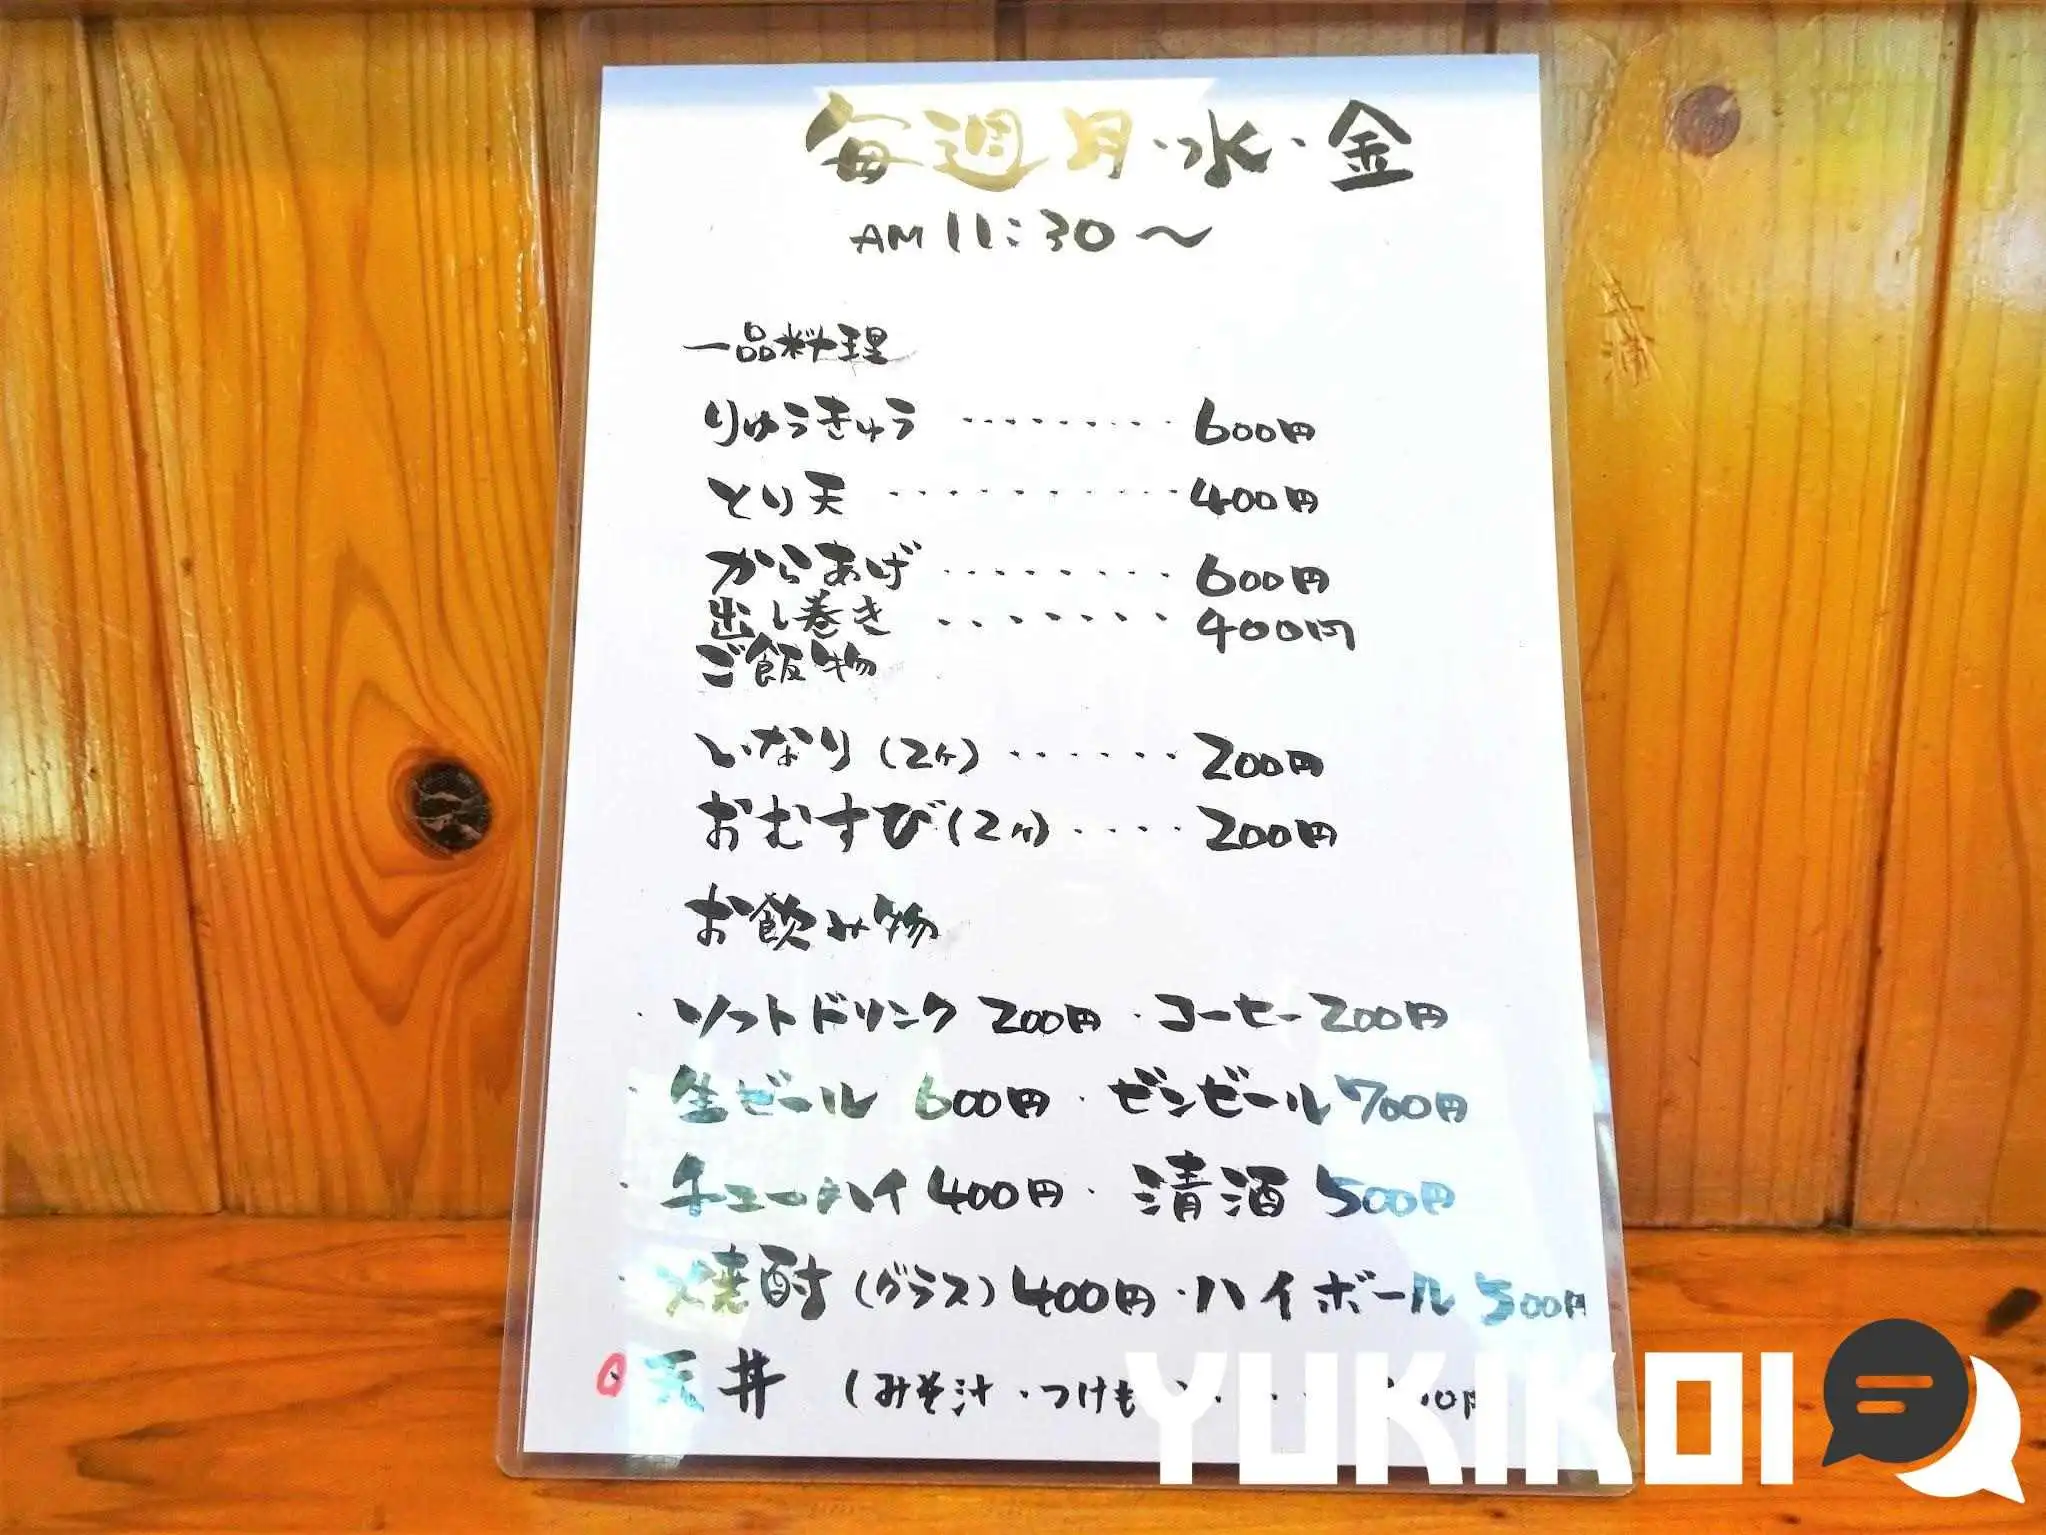 毎週月・水・金
AM 11:30〜
一品料理
りゅうきゅう ········ 600円
とり天 ·········· 400円
からあげ ········ 600円
出し巻き ······· 400円
ご飯物
いなり(2ヶ) ······ 200円
おむすび(2ヶ) ···· 200円
お飲み物
・ソフトドリンク 200円 ・コーヒー 200円
・生ビール 600円 ・ビンビール 700円
・チューハイ 400円 ・清酒 500円
・焼酎(グラス) 400円 ・ハイボール 500円
天丼 (みそ汁・つけも
YUKIKOI